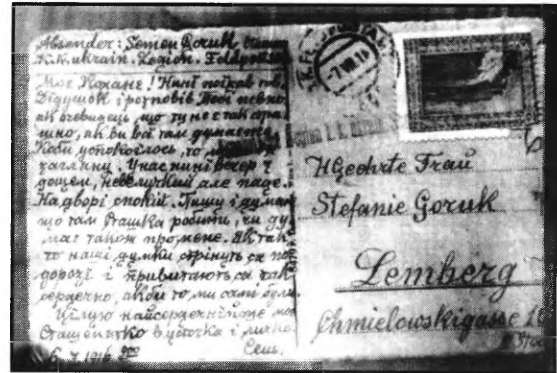 Absender: Semen Goruk,
K.k. ukrain. Legion. Feldpost
Моє Кохане! Нині поїхав
Дідушок і розповів Тобі певно,
як очевидець, що ту не є так стра-
шно, як ви всі там думаєте.
Коби успокоїлось, то
загляну. У нас нині вечер з
дощем, невеличкий але паде.
На дворі спокій. Пишу і думаю
що там Сташка робить, чи ду-
має також про мене. Як так,
то наші думки стрінуть ся по
дорозі і привитають ся так
сердечно, якби то ми самі були.
Цілую найсердечнійше моє
Сташенятко в усточка і личко.
Сень.
6. 7. 1916
HGeehrte Frau
Stefanie Goruk
Lemberg
Chmielowskigasse